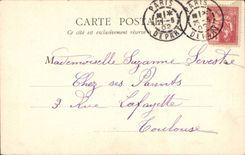 CARTE POST
Ce côté est exclusivement réservé
PARIS
DÉPART
PARIS
DÉPART
Mademoiselle Suzanne Sevestre
Chez ses Parents
3 Rue Lafayette
Toulouse